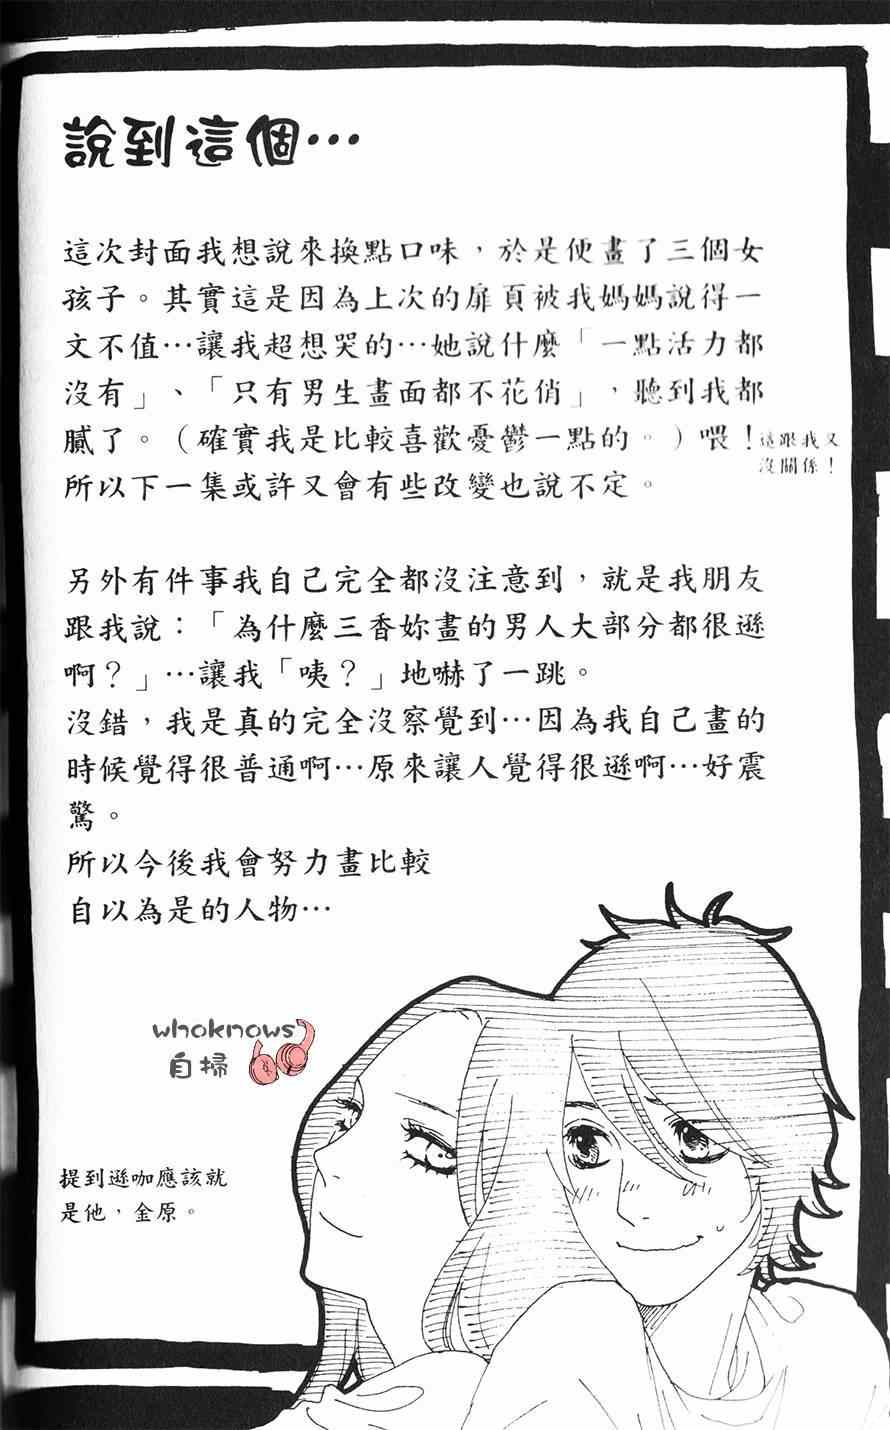 說到這個…
這次封面我想說來換點口味，於是便畫了三個女
孩子。其實這是因為上次的扉頁被我媽媽說得一
文不值…讓我超想哭的…她說什麼「一點活力都
沒有」、「只有男生畫面都不花俏」，聽到我都
膩了。（確實我是比較喜歡憂鬱一點的。）喂！
這跟我又
沒關係！
所以下一集或許又會有些改變也說不定。
另外有件事我自己完全都沒注意到，就是我朋友
跟我說：「為什麼三香妳畫的男人大部分都很遜
啊？」…讓我「咦？」地嚇了一跳。
沒錯，我是真的完全沒察覺到…因為我自己畫的
時候覺得很普通啊…原來讓人覺得很遜啊…好震
驚。
所以今後我會努力畫比較
自以為是的人物…
whoknows
自掃
提到遜咖應該就
是他，金原。